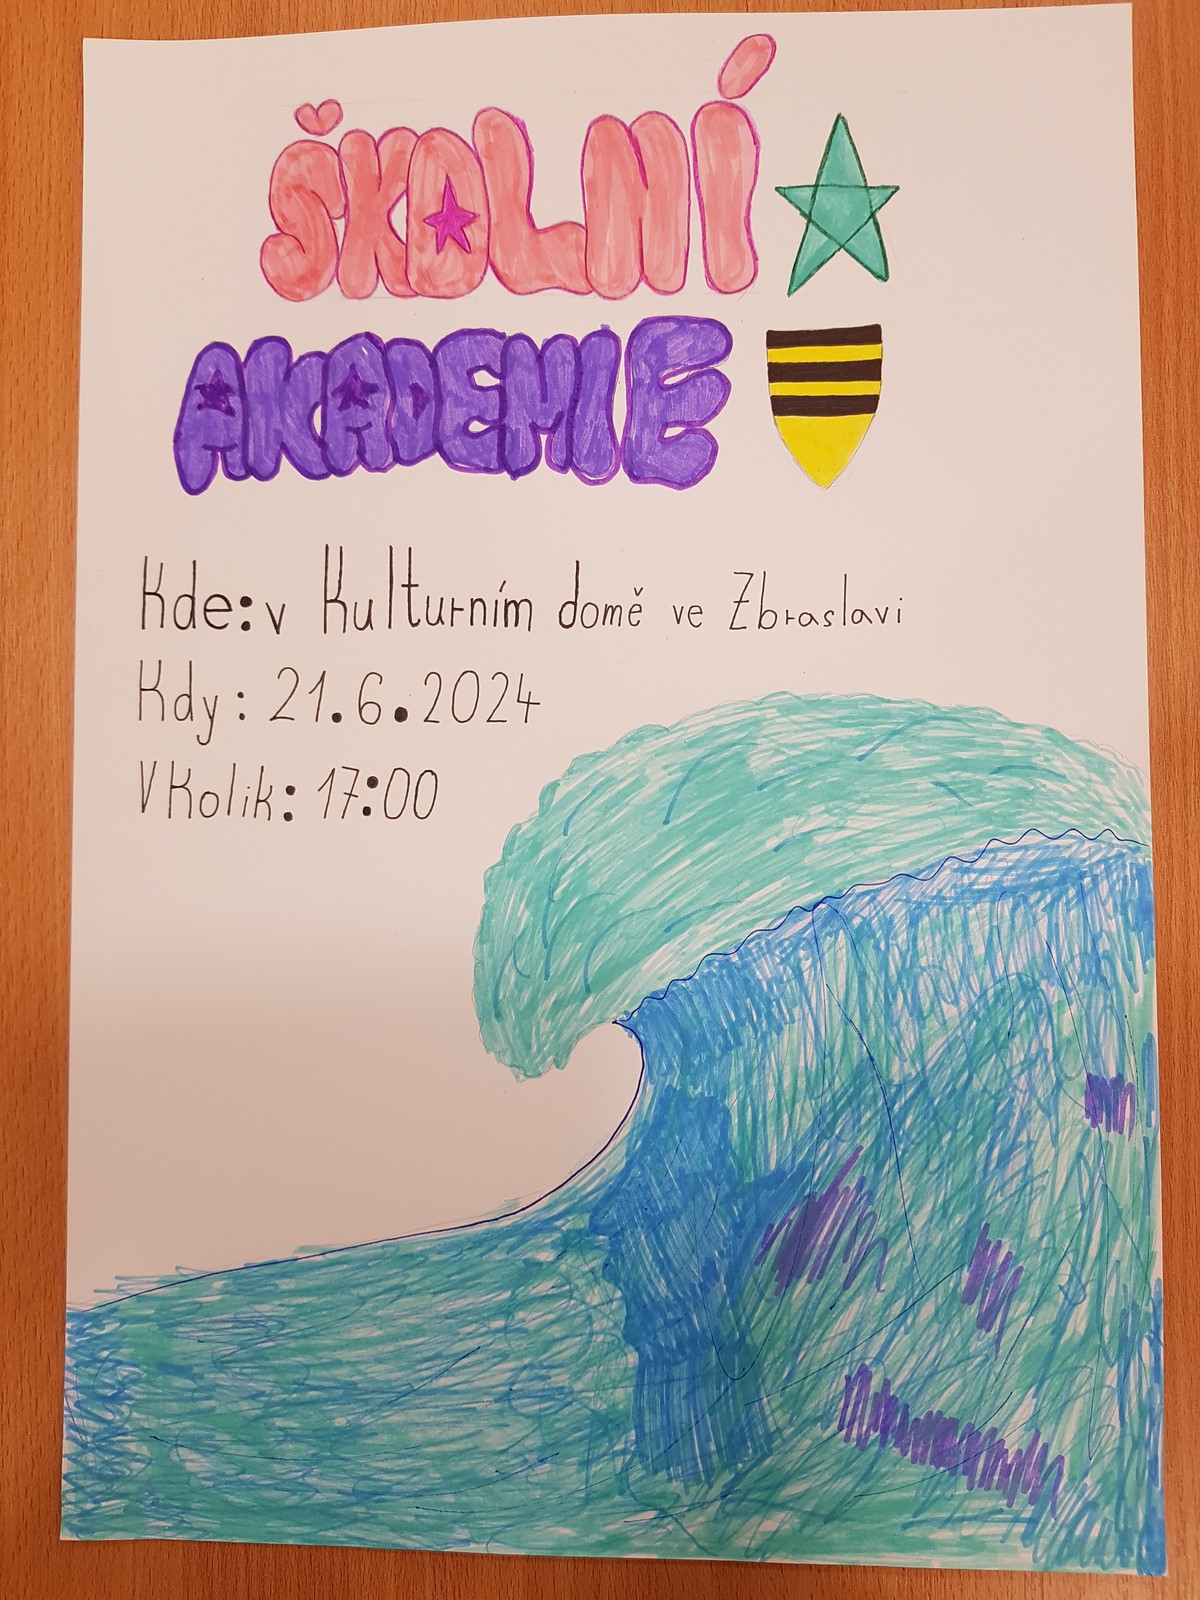 ŠKOLNÍ
AKADEMIE
Kde: v Kulturním domě ve Zbraslavi
Kdy: 21.6.2024
V Kolik: 17:00